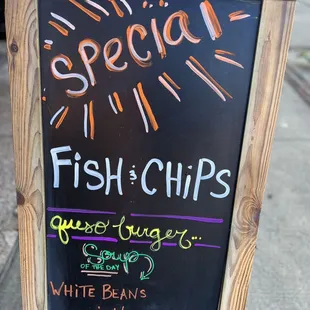 Special
FiSH & CHiPS
queso burger...
Soup
OF THE DAY
WHITE BEANS